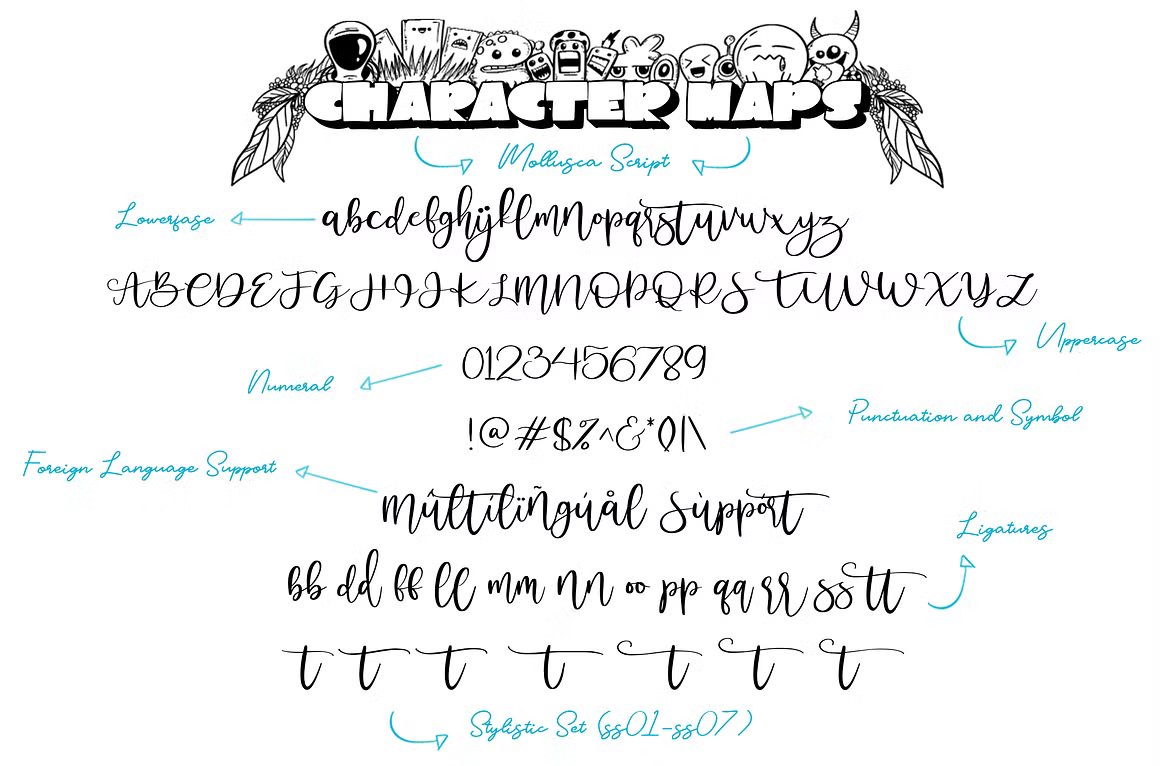 CHARACTER MAPS
Mollusca Script
Lowerfase
abcdefghijklmnopqrstuvwxyz
ABCDEFGHIJKLMNOPQRSTUVWXYZ
Uppercase
0123456789
Numeral
!@#$%^&*()|\
Punctuation and Symbol
Foreign Language Support
múltilïñgúål Sùppórt
Ligatures
bb dd ff ll mm nn oo pp qq rr ss tt
t t t t t t t
Stylistic Set (ss01-ss07)